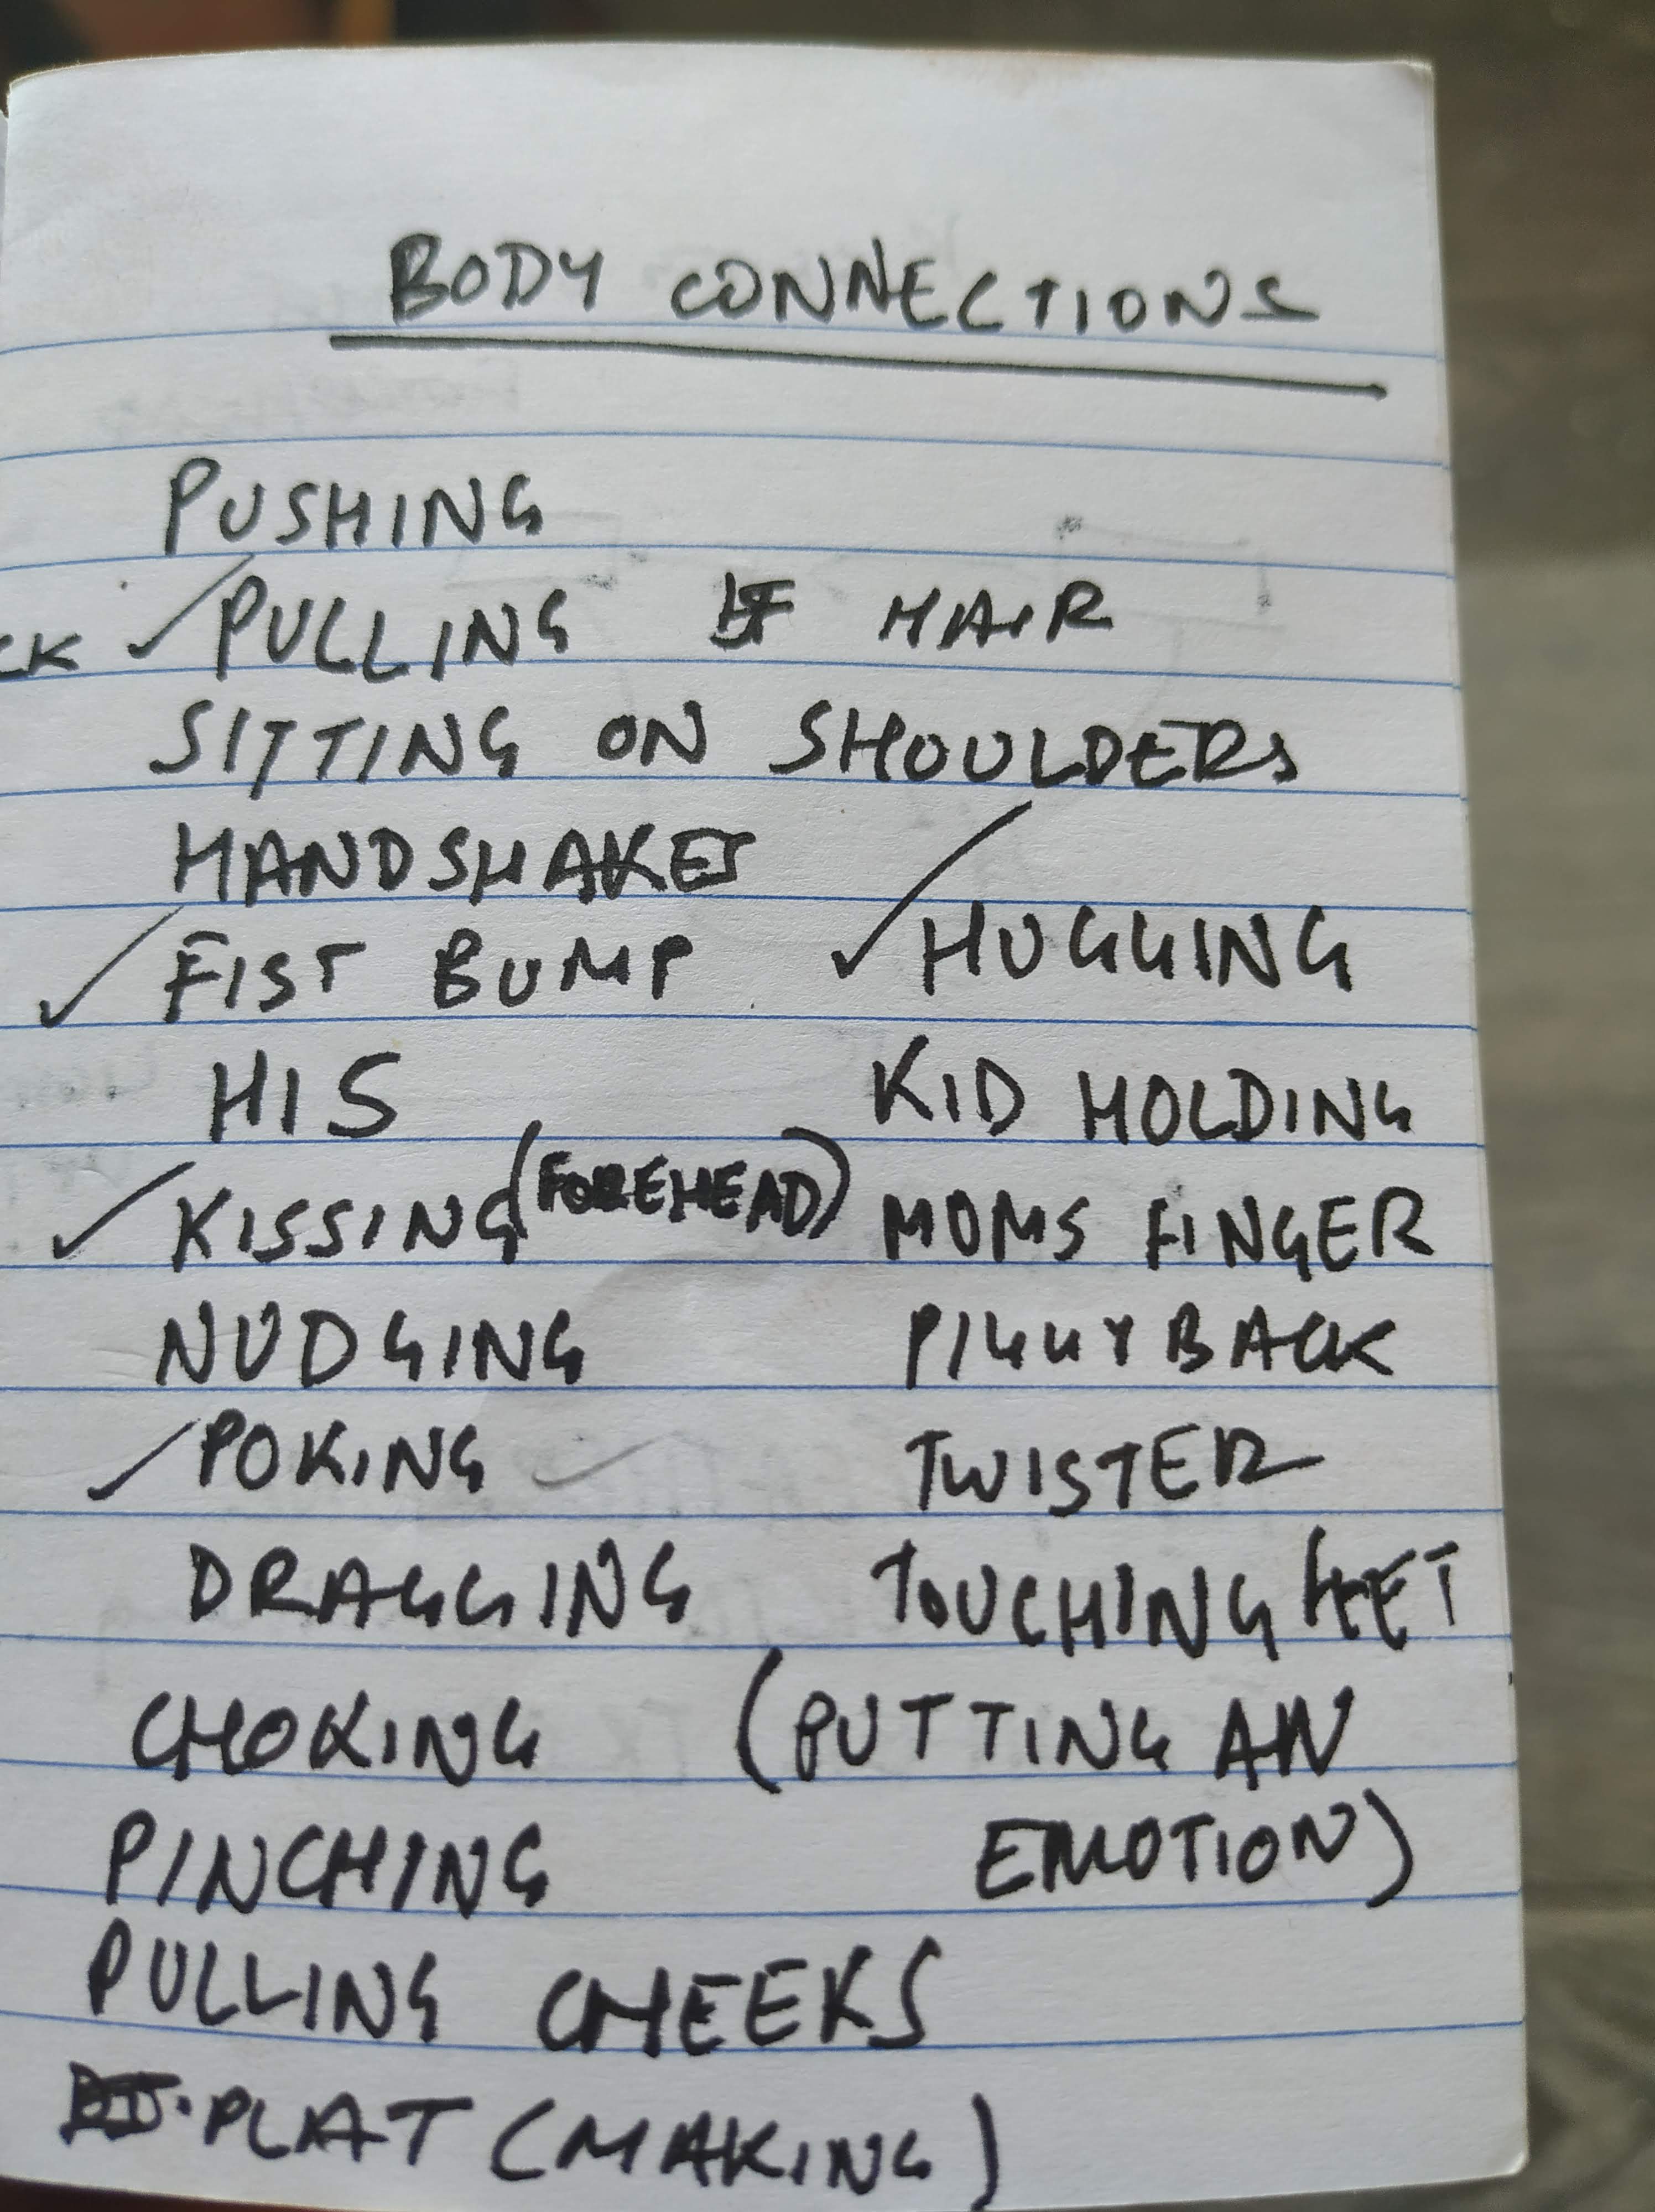 BODY CONNECTIONS
PUSHING
CK ✓ PULLING HAIR
SITTING ON SHOULDERS
HANDSHAKES
✓ FIST BUMP
HIS
✓ KISSING (FOREHEAD)
NUDGING
✓ POKING
DRAGGING
CHOKING
PINCHING
PULLING CHEEKS
PLAT (MAKING)
✓ HUGGING
KID HOLDING
MOMS FINGER
PIGGYBACK
TWISTER
TOUCHING FEET
(PUTTING AN
EMOTION)